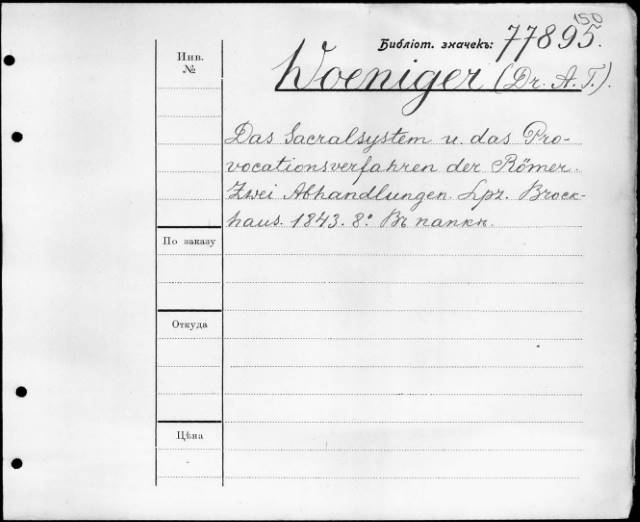 150
Библіот. значекъ: 77895.
Инв.
№
Woeniger (Dr. A. T.).
Das Sacralsystem u. das Pro-
vocationsverfahren der Römer.
Zwei Abhandlungen. Lpz. Brock-
haus. 1843. 8°. Въ папкѣ.
По заказу
Откуда
Цѣна